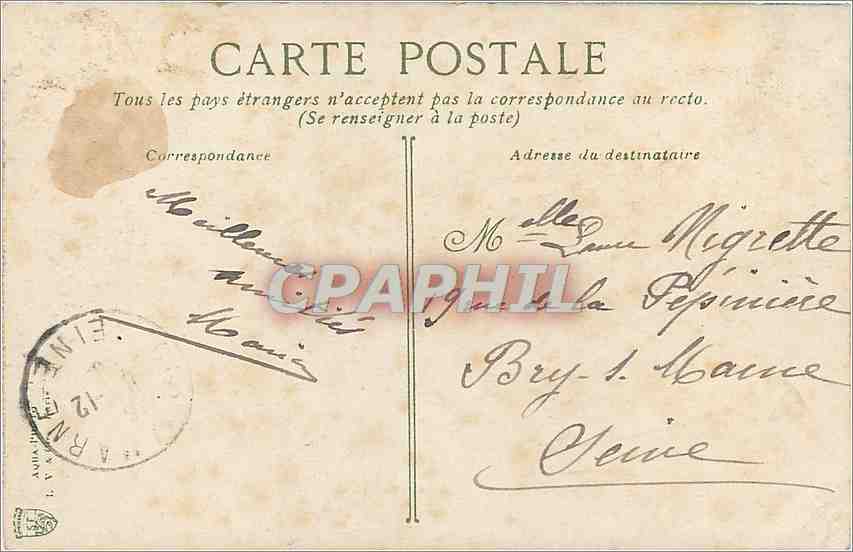 CARTE POSTALE
Tous les pays étrangers n'acceptent pas la correspondance au recto.
(Se renseigner à la poste)
Correspondance
Adresse du destinataire
Meilleures
amitiés
Maria
Melle Nigrette
rue de la Pépinière
Bry-s. Marne
Seine
CPAPHIL
EINE
12
ARNE
AQUA-PHOTO